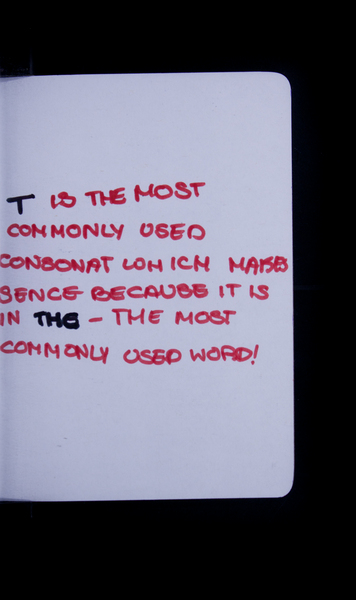 T IS THE MOST
COMMONLY USED
CONSONAT WHICH MAKES
SENCE BECAUSE IT IS
IN THE - THE MOST
COMMONLY USED WORD!